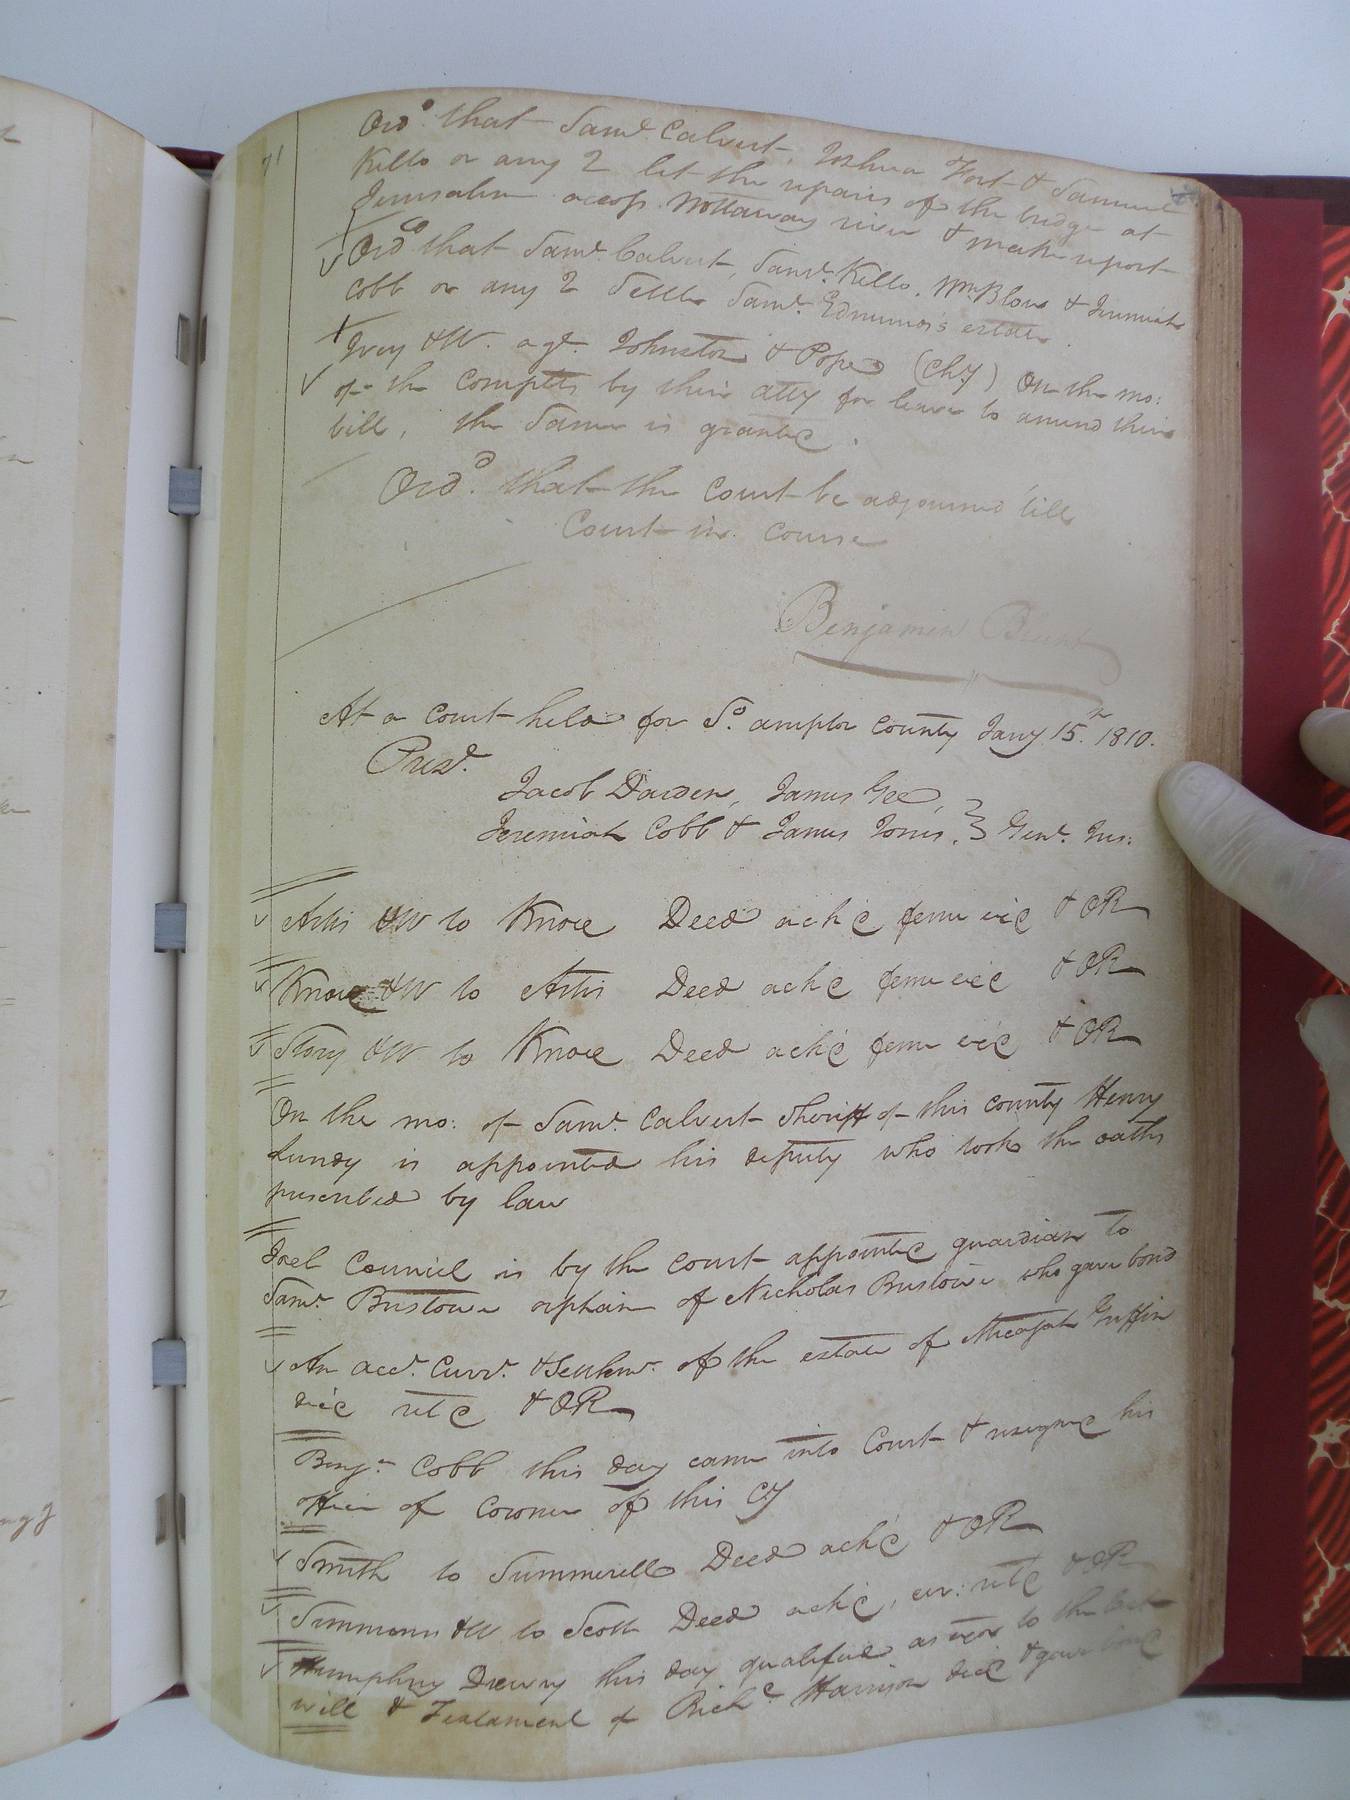 71
Ord. that Saml. Calvert, Joshua Fort & Samuel
Kello or any 2 let the repairs of the bridge at
Jerusalem across Nottaway river & make report
Ord. that Saml. Calvert, Saml. Kello, Wm. Blow & Jeremiah
Cobb or any 2 settle Saml. Edmunds's estate.
Ivey &W. agt. Johnston & Pope (Chy) On the mo:
of the complts by their atty for leave to amend their
bill, the same is granted.
Ord. that the court be adjourned till
Court in course
Benjamin Blunt
At a court held for So. ampton county Jany 15th. 1810.
Prest.
Jacob Darden, James Gee,
Jeremiah Cobb & James Jones, } Gent. Jus:
Artis &W to Knore Deed ack'd feme ex'd & OR
Knore &W to Artis Deed ack'd feme ex'd & OR
Story &W to Knore Deed ack'd feme ex'd & OR
On the mo: of Saml. Calvert Sheriff of this county Henry
Lundy is appointed his deputy who took the oaths
prescribed by law
Joel Council is by the court appointed guardian to
Saml. Bristowe orphan of Nicholas Bristowe who gave bond
An acct. Curr. & Settlemt. of the estate of Micajah Griffin
dec'd retd & OR
Benjn. Cobb this day came into Court & resigned his
office of Coroner of this Cy
Smith to Summerell Deed ack'd & OR
Simmons &W to Scott Deed ack'd, retd & OR
Humphrey Drewry this day qualified as exor to the last
will & Testament of Richd. Harrison dec'd & gave bond